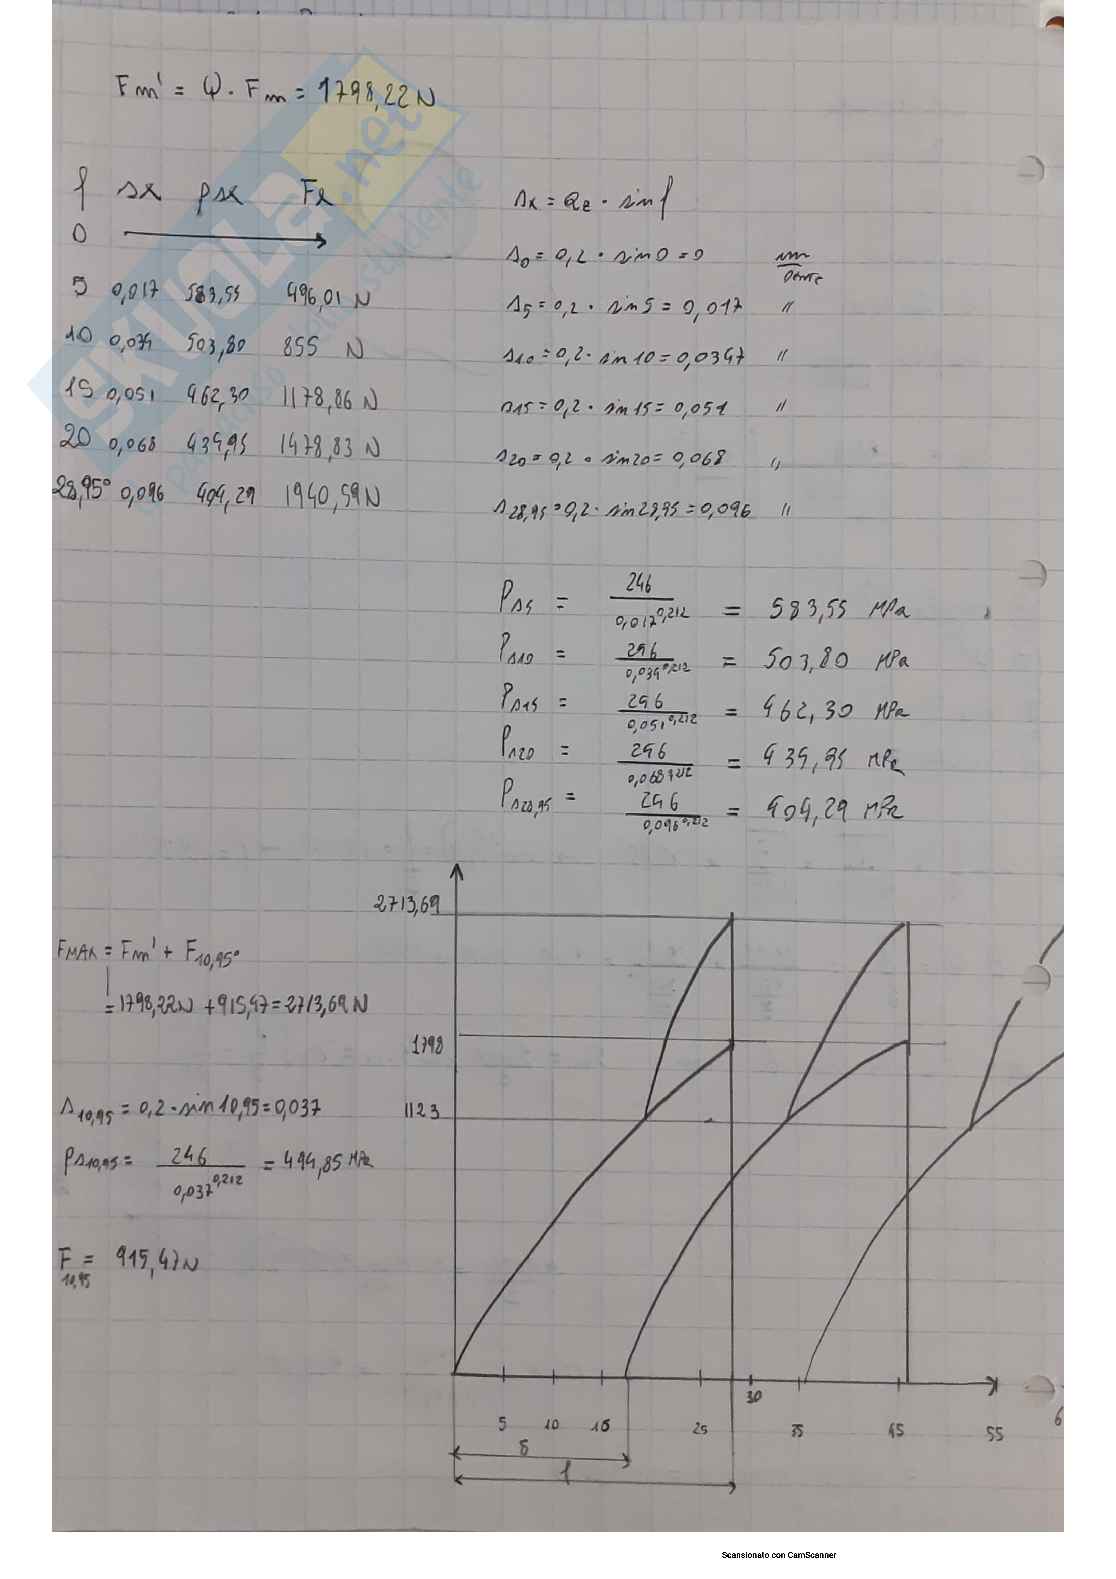 Fm' = φ · Fm = 1798,22 N
f sx psx Fx
0
5 0,017 583,55 496,01 N
10 0,034 503,80 855 N
15 0,051 462,30 1178,86 N
20 0,068 434,95 1478,83 N
28,95° 0,096 404,29 1940,59 N
sx = az · sin f
s0 = 0,2 · sin 0 = 0 mm/dente
s5 = 0,2 · sin 5 = 0,017 "
s10 = 0,2 · sin 10 = 0,0347 "
s15 = 0,2 · sin 15 = 0,051 "
s20 = 0,2 · sin 20 = 0,068 "
s28,95 = 0,2 · sin 28,95 = 0,096 "
Ps5 = 246 / 0,017^0,212 = 583,55 MPa
Ps10 = 246 / 0,034^0,212 = 503,80 MPa
Ps15 = 246 / 0,051^0,212 = 462,30 MPa
Ps20 = 246 / 0,068^0,212 = 434,95 MPa
Ps28,95 = 246 / 0,096^0,212 = 404,29 MPa
2713,69
FMAX = Fm' + F10,95°
= 1798,22N + 915,47 = 2713,69 N
1798
s10,95 = 0,2 · sin 10,95 = 0,037
1123
Ps10,95 = 246 / 0,037^0,212 = 494,85 MPa
F10,95 = 915,47 N
30
5 10 15 25 35 45 55 6
δ
f
SKUOLA.net
Scansionato con CamScanner